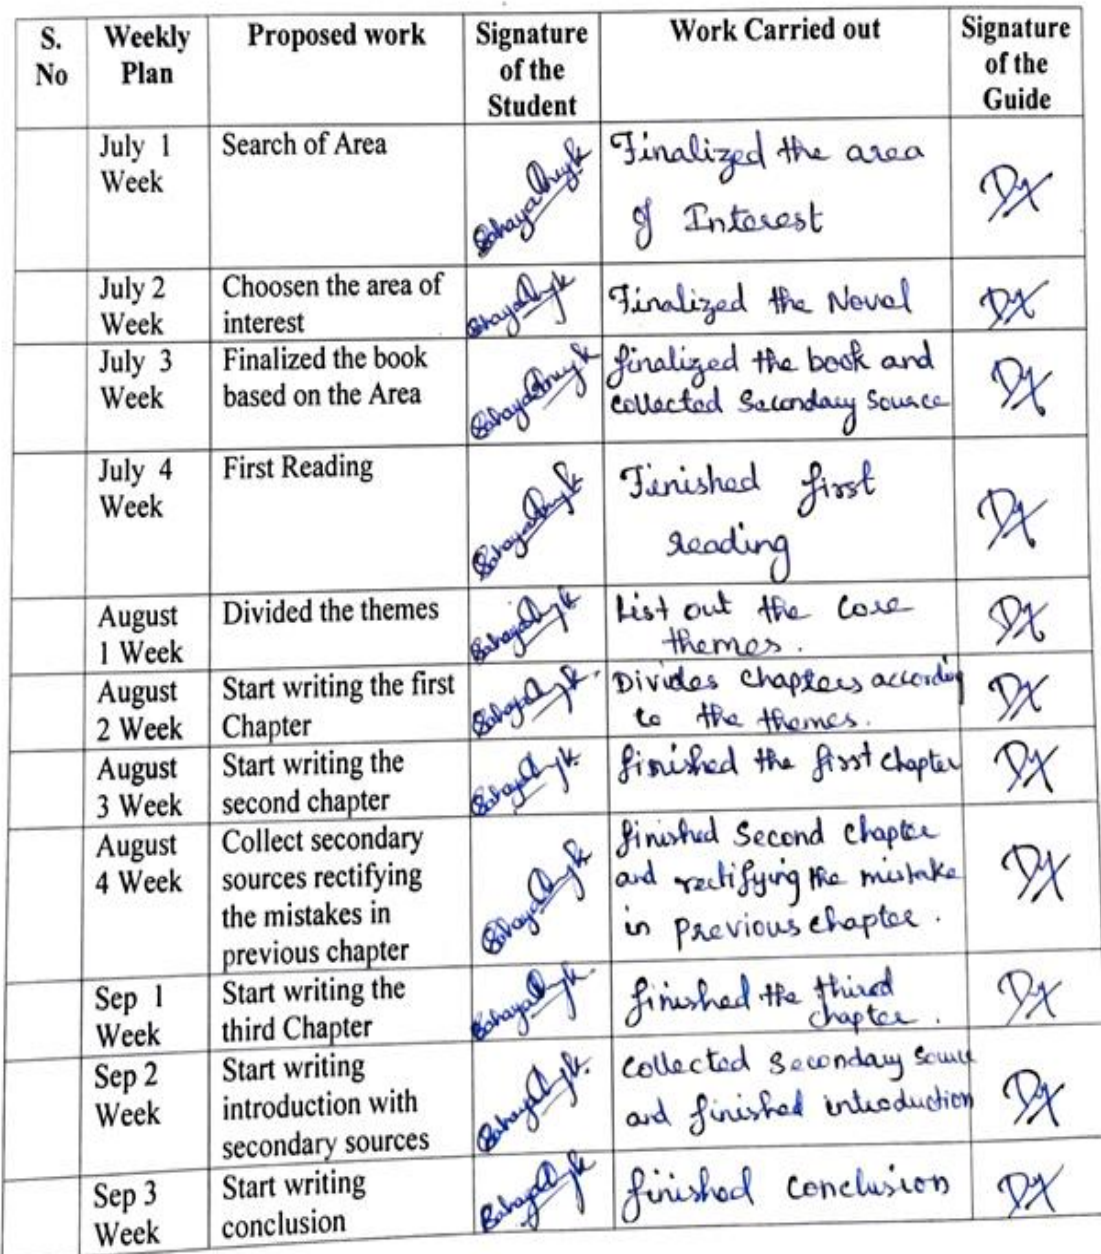 S. No Weekly Plan Proposed work Signature of the Student Work Carried out Signature of the Guide
July 1 Week
Search of Area
Finalized the area
of Interest
July 2 Week
Choosen the area of
interest
Finalized the Novel
July 3 Week
Finalized the book
based on the Area
finalized the book and
collected Secondary Source
July 4 Week
First Reading
Finished first
reading
August 1 Week
Divided the themes
List out the Core
themes.
August 2 Week
Start writing the first
Chapter
Divides chapters according
to the themes.
August 3 Week
Start writing the
second chapter
finished the first chapter
August 4 Week
Collect secondary
sources rectifying
the mistakes in
previous chapter
finished Second chapter
and rectifying the mistake
in previous chapter.
Sep 1 Week
Start writing the
third Chapter
finished the third
chapter.
Sep 2 Week
Start writing
introduction with
secondary sources
Collected Secondary source
and finished introduction
Sep 3 Week
Start writing
conclusion
finished conclusion